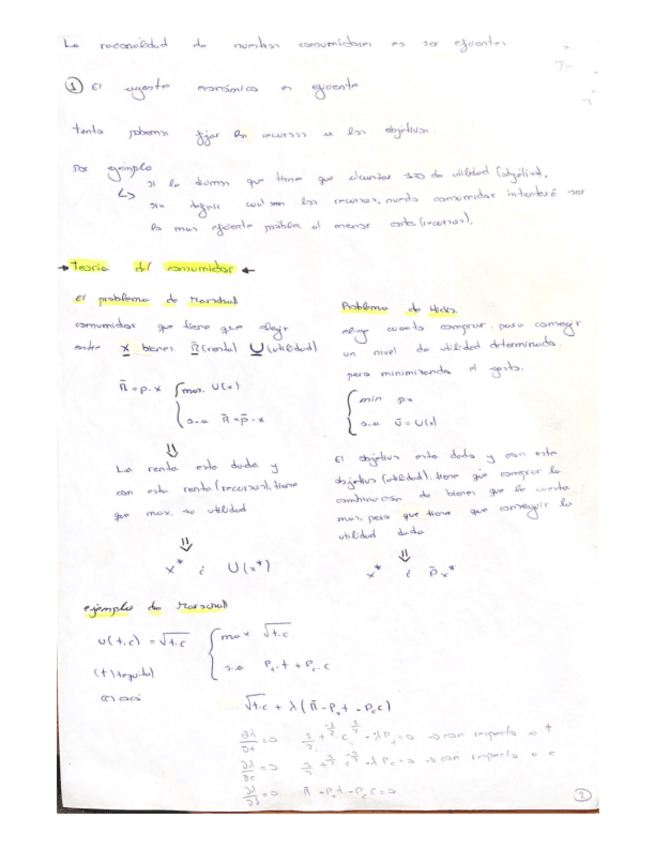 La racionalidad de nuestros consumidores es ser eficientes
① El agente económico es eficiente
tanto podemos fijar los recursos u los objetivos.
Por ejemplo
↳ si le decimos que tiene que alcanzar 10 de utilidad (objetivo),
sin definir cual son los recursos, nuestro consumidor intentará ser
lo mas eficiente posible al menor coste (recursos).
→ Teoria del consumidor ←
El problema de Marschall
consumidor que tiene que elegir
entre x bienes. R̄ (renta) U (utilidad)
R̄ = p·x { max. U(x)
s.a R̄ = p̄·x
⇓
La renta esta dada y
con esta renta (recursos), tiene
que max. su utilidad
⇓
x* i U(x*)
Problema de Hicks.
elige cuanto comprar para conseguir
un nivel de utilidad determinada.
pero minimizando el gasto.
{ min px
s.a Ū = U(x)
El objetivo esta dado y con este
objetivo (utilidad), tiene que comprar la
combinación de bienes que le cuesta
mas, pero que tiene que conseguir la
utilidad dada
⇓
x* i p̄x*
ejemplo de Marschall
U(t,c) = √t·c { max √t·c
s.a P_t·t + P_c·c
(t)
√t·c + λ(R̄ - P_t t - P_c c)
∂λ/∂t = 0 1/2 t^(-1/2) c^(1/2) - λP_t = 0 → con respecto a t
∂λ/∂c = 0 1/2 t^(1/2) c^(-1/2) - λP_c = 0 → con respecto a c
∂λ/∂λ = 0 R̄ - P_t t - P_c c = 0
②